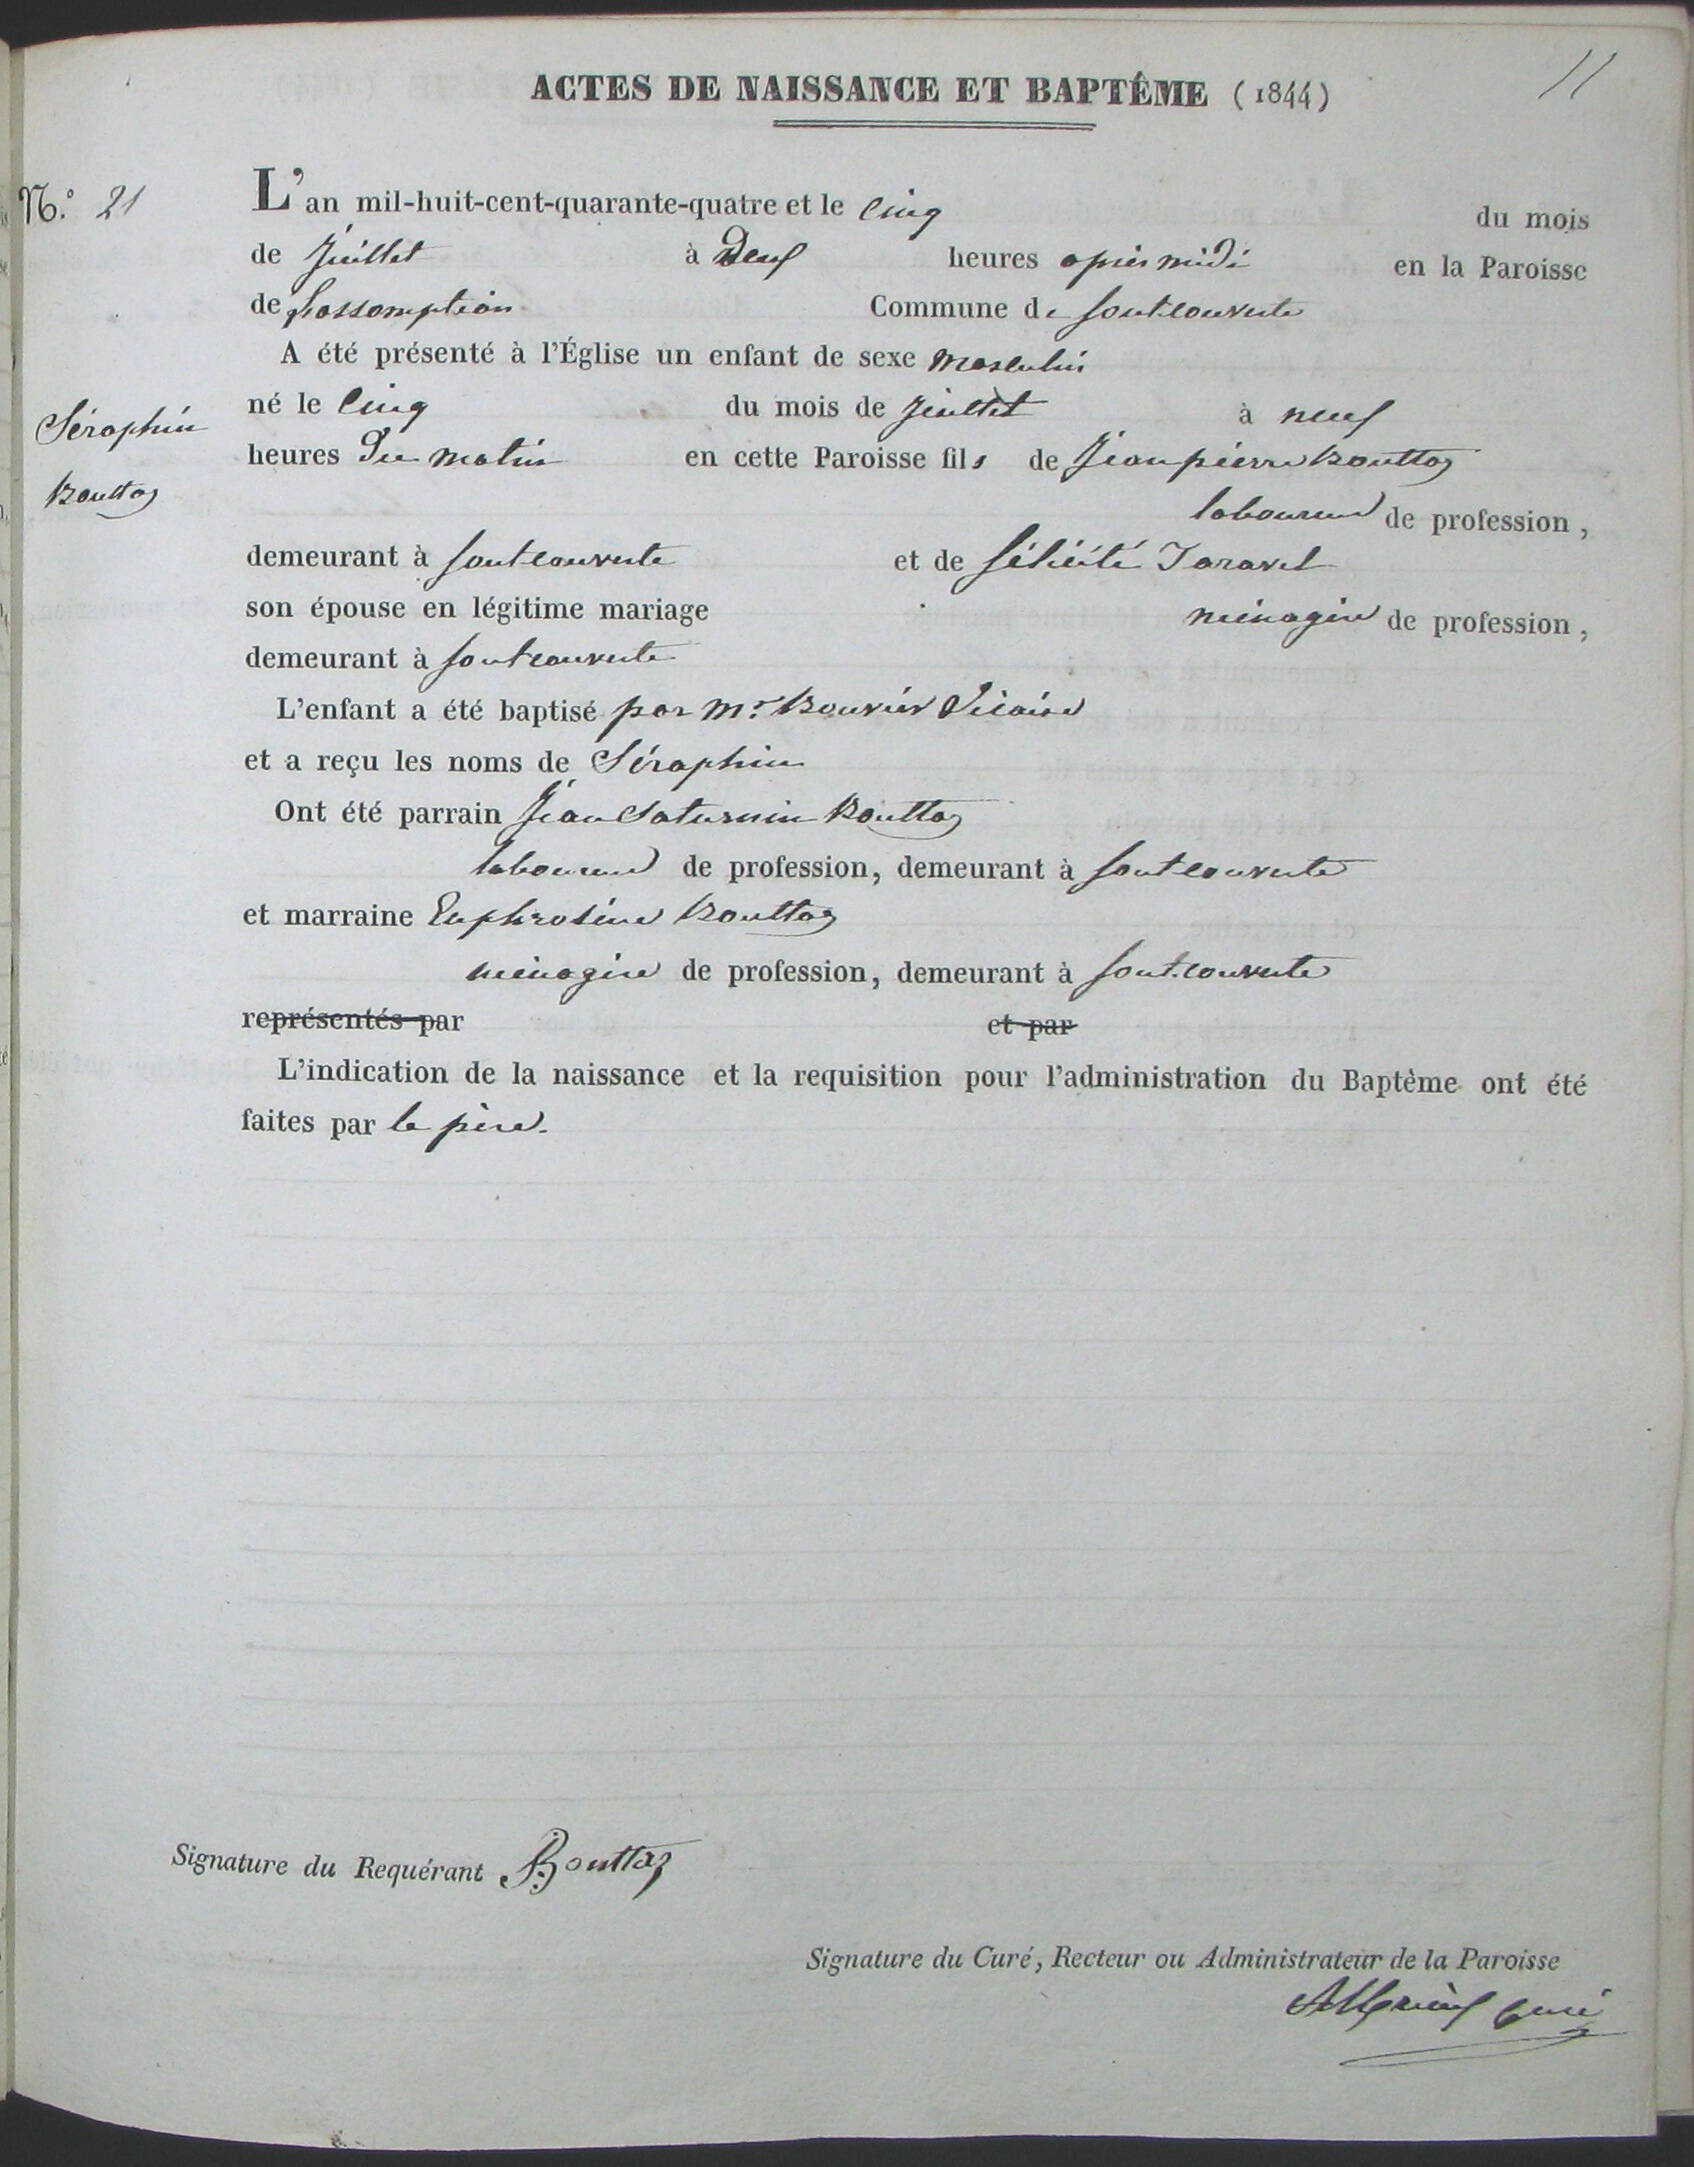 11
ACTES DE NAISSANCE ET BAPTÊME (1844)
N.° 21
L'an mil-huit-cent-quarante-quatre et le cinq du mois
de Juillet à Deux heures après midi en la Paroisse
de L'assomption Commune de Fontcouverte
A été présenté à l'Église un enfant de sexe masculin
né le cinq du mois de juillet à neuf
Séraphin
heures Du matin en cette Paroisse fils de Jean pierre Bouttaz
Bouttaz
laboureur de profession,
demeurant à fontcouverte et de félicité Taravel
son épouse en légitime mariage ménagère de profession,
demeurant à fontcouverte
L'enfant a été baptisé par Mr. Bouvier Vicaire
et a reçu les noms de Séraphin
Ont été parrain Jean Saturnin Bouttaz
laboureur de profession, demeurant à fontcouverte
et marraine Euphrosine Bouttaz
ménagère de profession, demeurant à fontcouverte
représentés par et par
L'indication de la naissance et la requisition pour l'administration du Baptème ont été
faites par le père.
Signature du Requérant Bouttaz
Signature du Curé, Recteur ou Administrateur de la Paroisse
curé